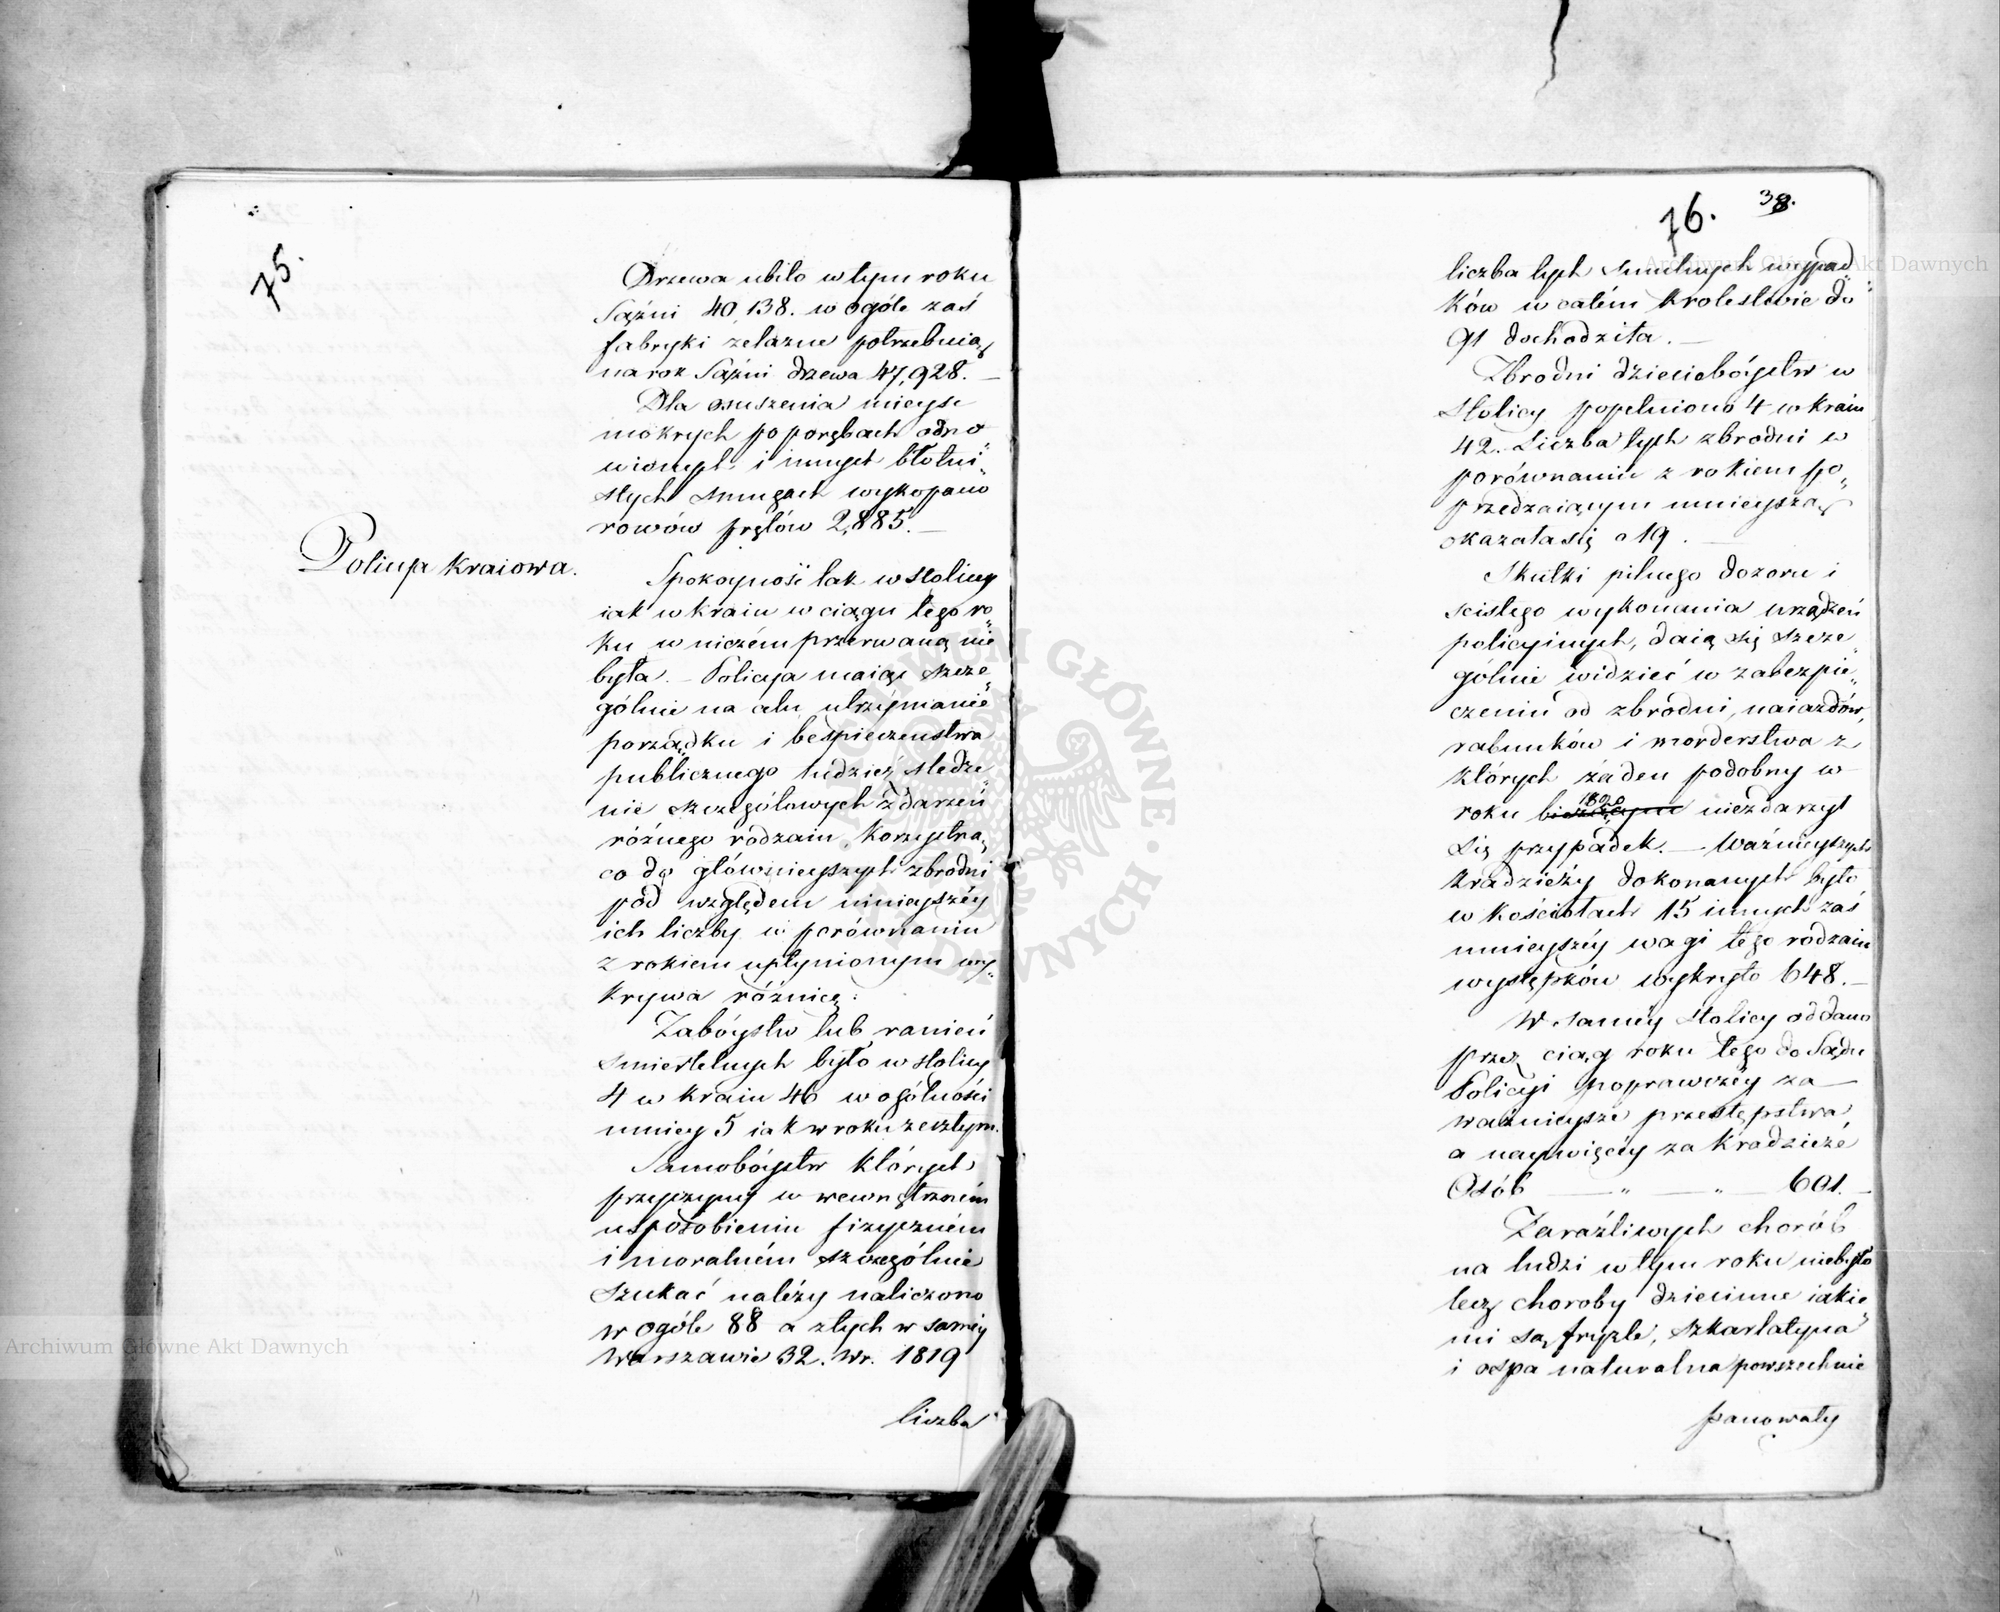 75.
Drzewa ubito w tym roku
Sążni 40,138. w ogóle zaś
fabryki zelazne potrzebuią
na rok Sążni drzewa 47,928. —
Dla osuszenia mieysc
mokrych po porębach odno„
wionych i innych błotni„
stych smugach wykopano
rowów prętów 2,885. —
Policya Kraiowa.
Spokoyność tak w stolicy
iak w kraiu w ciągu tego ro„
ku w niczém przerwaną nie
była. — Policya maiąc szcze„
gólnie na celu utrzymanie
porządku i bespieczenstwa
publicznego tudzież śledze„
nie szczegółowych zdarzeń
różnego rodzaiu, korzystną
co do główniejszych zbrodni
pod względem mnieyszéy
ich liczby w porównaniu
z rokiem upłynionym wy„
krywa różnicę:
Zabóystw lub ranień
smiertelnych było w stolicy
4 w kraiu 46 w ogólności
mniey 5 iak w roku zeszłym.
Samobóystw których
przyczyny w wewnętrzném
usposobieniu fizyczném
i moralném szczególnie
szukać należy naliczono
w ogóle 88 a z tych w saméy
Warszawie 32. w r. 1819
liczba
76. 38.
liczba tych smutnych wypad„
ków w całém Krolestwie do
91 dochodziła. —
Zbrodni dzieciobóystw w
Stolicy popełniono 4 w kraiu
42. Liczba tych zbrodni w
porównaniu z rokiem po„
przedzaiącym mnieyszą
okazała się o 19. —
Skutki pilnego dozoru i
scisłego wykonania urządzeń
policyinych, daią się szcze„
gólnie widzieć w zabezpie„
czeniu od zbrodni, naiazdów,
rabunków i morderstwa z
których żaden podobny w
roku 1820 niezdarzył
się przypadek. — Ważnieyszych
kradzieży dokonanych było
w kościołach 15 innych zaś
mnieyszéy wagi tego rodzaiu
występków wykryto 648. —
W saméy stolicy oddano
przez ciąg roku tego do Sądu
Policyi poprawczéy za —
ważnieysze przestępstwa,
a naywięcéy za kradzieże
Osób — „ — „ — 601. —
Zaraźliwych chorób
na ludzi w tym roku niebyło
lecz choroby dziecinne iakie„
mi są fryzle, szkarlatyna
i ospa naturalna powszechnie
panowały
Archiwum Główne Akt Dawnych
Archiwum Główne Akt Dawnych
ARCHIWUM GŁÓWNE AKT DAWNYCH